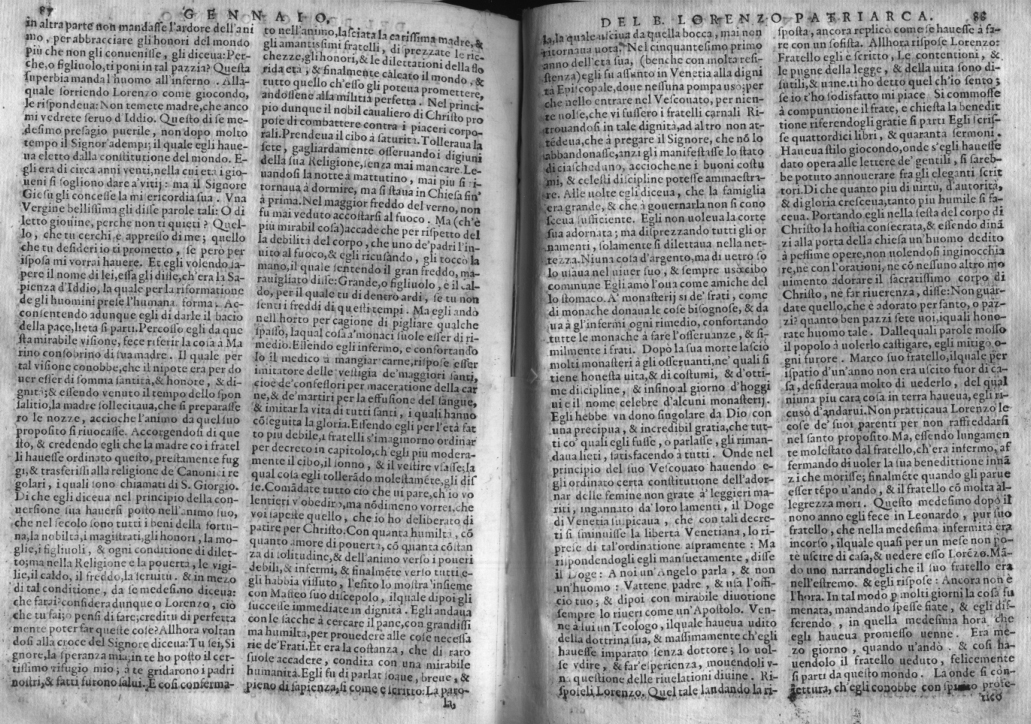 87 GENNAIO.
in altra parte non mandasse l'ardore dell'ani
mo, per abbracciare gli honori del mondo
più che non gli conuenisse, gli diceua: Per-
che, o figliuolo, ti poni in tal pazzia? Questa
superbia manda l'huomo all'inferno. Alla-
quale sorridendo Lorenzo come giocondo,
le rispondeua: Non temete madre, che anco
mi vedrete seruo d'Iddio. Questo di se me-
desimo presagio puerile, non dopo molto
tempo il Signor' adempì; il quale egli haue-
ua eletto dalla constitutione del mondo. E-
gli era di circa anni venti, nella cui età i gio-
ueni si sogliono dare a' vitij: ma il Signore
Giesu gli concesse la misericordia sua. Vna
Vergine bellissima gli disse parole tali: O di
letto giouine, perche non ti quieti? Quel-
lo, che tu cerchi è appresso di me; quello
che tu desideri io ti prometto, se però per
isposa mi vorrai hauere. Et egli volendo sa-
pere il nome di lei, essa gli disse, ch'era la Sa-
pienza d'Iddio, la quale per la riformatione
de gli huomini prese l'humana forma. Ac-
consentendo adunque egli di darle il bacio
della pace, lieta si partì. Percosso egli da que
sta mirabile visione, fece risferir la cosa à Ma
rino consobrino di sua madre. Il quale per
tal visione conobbe, che il nipote era per do
uer esser di somma santità, & honore, & di-
gnità; & essendo venuto il tempo dello spon
salitio, la madre sollecitaua, che si preparasse
ro le nozze, accioche l'animo da quel suo
proposito si riuocasse. Accorgendosi di que
sto, & credendo egli che la madre co i fratel
li hauesse ordinato questo, prestamente fug
gì, & trasferissi alla religione de Canonici re
golari, i quali sono chiamati di S. Giorgio.
Di che egli diceua nel principio della con-
uersione sua hauersi posto nell'animo suo,
che nel secolo sono tutti i beni della fortu-
na, la nobiltà, i magistrati, gli honori, la mo-
glie, i figliuoli, & ogni conditione di dilet-
to; ma nella Religione è la pouertà, le vigi-
lie, il caldo, il freddo, la seruitù. & in mezo
di tal conditione, da se medesimo diceua:
che farai? considera dunque o Lorenzo, ciò
che tu fai; ò pensi di fare; creditu di perfetta
mente poter far queste cose? Allhora voltan
dosi alla croce del Signore diceua: Tu sei, Si
gnore, la speranza mia; in te ho posto il cer-
tissimo rifugio mio; à te gridarono i padri
nostri, & fatti furono salui. E così conferma-
to nell'animo, lasciata la carissima madre, &
gli amantissimi fratelli, disprezzate le ric-
chezze, gli honori, & le dilettationi della flo
rida età, & finalmente calcato il mondo, &
tutto quello ch'esso gli poteua promettere,
andossene alla militia perfetta. Nel princi-
pio dunque il nobil caualiero di Christo pro
pose di combattere contra i piaceri corpo-
rali. Prendeua il cibo à saturità. Tolleraua la
sete, gagliardamente osseruando i digiuni
della sua Religione, senza mai mancare. Le-
uandosi la notte a mattutino, mai più si ri-
tornaua à dormire, ma si staua in Chiesa fin'
à prima. Nel maggior freddo del verno, non
fu mai veduto accostarsi al fuoco. Ma (ch'è
più mirabil cosa) accade che per rispetto del
la debilità del corpo, che uno de' padri l'in-
uitò al fuoco, & egli ricusando, gli toccò la
mano, il quale sentendo il gran freddo, ma-
rauigliato disse: Grande, o figliuolo, è il cal-
do, per il quale tu di dentro ardi, se tu non
senti i freddi di questi tempi. Ma egli ando
nell'horto per cagion di pigliare qualche
spasso, la qual cosa a' monaci suole esser di ri-
medio. Essendo egli infermo, e confortando
lo il medico à mangiar carne, rispose esser
imitatore delle vestigia de' maggiori santi,
cioè de' confessori per maceratione della car
ne, & de' martiri per la effusione del sangue,
& imitar la vita di tutti santi, i quali hanno
cōseguita la gloria. Essendo egli per l'età fat
to più debile, i fratelli s'imaginorno ordinar
per decreto in capitolo, ch egli più modera-
mente il cibo, il sonno, & il vestire vsasse; la
qual cosa egli tollerādo molestamēte, gli dis
se. Comādate tutto ciò che ui pare, ch'io vo
lentieri v'obedirò, ma nōdimeno vorrei, che
voi sapeste quello, che io ho deliberato di
patire per Christo. Con quanta humiltà, cō
quanto amore di pouertà, cō quanta cōstan
za di solitudine, & dell'animo verso i poueri
debili, & infermi, & finalmēte verso tutti, e-
gli habbia vissuto, l'esito lo mostra 'insieme
con Matteo suo discepolo, il quale dipoi gli
successe immediate in dignità. Egli andaua
con le sacche à cercare il pane, con grandissi
ma humiltà, per prouedere alle cose necessa
rie de' Frati. Et era la costanza, che di raro
suole accadere, condita con una mirabile
humanità. Egli fu di parlar soaue, breue, &
pieno di sapienza, sì come è scritto: La paro-
la,
DEL B. LORENZO PATRIARCA. 88
la, la quale usciua da quella bocca, mai non
ritornaua uota. Nel cinquantesimo primo
anno dell'età sua, (benche con molta resi-
stenza) egli fu assunto in Venetia alla digni
tà Episcopale, doue nessuna pompa usò; per
che nello entrare nel Vescouato, per nien-
te uolse, che vi fussero i fratelli carnali. Ri-
trouandosi in tale dignità, ad altro non at-
tēdeua, che à pregare il Signore, che nō lo
abbandonasse, anzi gli manifestasse lo stato
di ciascheduno, accioche ne i buoni costu
mi, & celesti discipline potesse ammaestra-
re. Alle uolte egli diceua, che la famiglia
era grande, & che à gouernarla non si cono
sceua sufficiente. Egli non uoleua la corte
sua adornata; ma disprezzando tutti gli or
namenti, solamente si dilettaua nella net-
tezza. Niuna cosa d'argento, ma di uetro so
lo usaua nel uiuer suo, & sempre usò cibo
commune. Egli amò l'oua come amiche del
lo stomaco. A' monasterij sì de' frati, come
di monache donaua le cose bisognose, & da
ua à gl'infermi ogni rimedio, confortando
tutte le monache à fare l'osseruanze, & si-
milmente i frati. Dopò la sua morte lasciò
molti monasteri à gli osseruanti, ne' quali si
tiene honesta uita, & di costumi, & d'otti-
me discipline, & insino al giorno d'hoggi
ui è il nome celebre d'alcuni monasterij.
Egli hebbe vn dono singolare da Dio con
una precipua, & incredibil gratia, che tut-
ti co' quali egli fusse, o parlasse, gli riman-
daua lieti, satisfacendo à tutti. Onde nel
principio del suo Vescouato hauendo e-
gli ordinato certa constitutione dell'ador-
nar delle femine non grate à' leggieri ma-
riti, ingannato da' loro lamenti, il Doge
di Venetia suspicaua, che con tali decre-
ti si sminuisse la libertà Venetiana, lo ri-
prese di tal'ordinatione aspramente: Ma
rispondendogli egli mansuetamente, disse
il Doge: A noi un'Angelo parla, & non
un'huomo: Vattene padre, & usa l'offi-
cio tuo; & dipoi con mirabile diuotione
sempre lo riuerì come un'Apostolo. Ven-
ne à lui un Teologo, il quale haueua udito
della dottrina sua, & massimamente ch'egli
hauesse imparato senza dottore; lo uol-
se vdire, & far'esperienza, mouendoli v-
na questione delle riuelationi diuine. Ri-
sposeli Lorenzo. Quel tale laudando la ri-
sposta, ancora replicò come se hauesse à fa-
re con un sofista. Allhora rispose Lorenzo:
Fratello egli è scritto, Le contentioni, &
le pugne della legge, & della uita sono di-
sutili, & uane. ti ho detto quel ch'io sento;
se io t'ho sodisfatto mi piace. Si commosse
à compuntione il frate, e chiesta la benedit
tione riferendogli gratie si partì. Egli scris-
se quattordici libri, & quaranta sermoni.
Haueua stilo giocondo, onde s'egli hauesse
dato opera alle lettere de' gentili, si sareb-
be potuto annouerare fra gli eleganti scrit
tori. Di che quanto più di uirtù, d'autorità,
& di gloria cresceua, tanto più humile si fa-
ceua. Portando egli nella festa del corpo di
Christo la hostia consecrata, & essendo dinā
zi alla porta della chiesa un'huomo dedito
à pessime opere, non uolendosi inginocchia
re, ne con l'orationi, ne cō nessuno altro mo
uimento adorare il sacratissimo corpo di
Christo, ne far riuerenza, disse: Non guar-
date quello, che è adorato per santo, o paz-
zi? quanto ben pazzi sete uoi, i quali hono-
rate huomo tale. Dalle quali parole mosso
il popolo à uolerlo castigare, egli mitigò o-
gni furore. Marco suo fratello, il quale per
ispatio d'un'anno non era uscito fuor di ca-
sa, desideraua molto di uederlo, del qual
niuna più cara cosa in terra haueua, egli ri-
cusò d'andarui. Non pratticaua Lorenzo le
cose de' suoi parenti per non raffreddarsi
nel santo proposito. Ma, essendo lungamen
te molestato dal fratello, ch'era infermo, af
fermando di uoler la sua benedittione innā
zi che morisse; finalmēte quando gli parue
esser tēpo u'andò, & il fratello cō molta al-
legrezza morì. Questo medesimo dopò il
nono anno egli fece in Leonardo, pur suo
fratello, che nella medesima infermità era
incorso, il quale quasi per un mese non po-
tè uscire di casa, & uedere esso Lorēzo. Mā-
do uno narrandogli che il suo fratello era
nell'estremo. & egli rispose: Ancora non è
l'hora. In tal modo p molti giorni la cosa fu
menata, mandando spesse fiate, & egli dif-
ferendo, in quella medesima hora che
egli haueua promesso uenne. Era me-
zo giorno, quando u'andò. & così ha-
uendolo il fratello ueduto, felicemente
si partì da questo mondo. La onde si con-
iettura, ch'egli conobbe con spirito profe-
tico